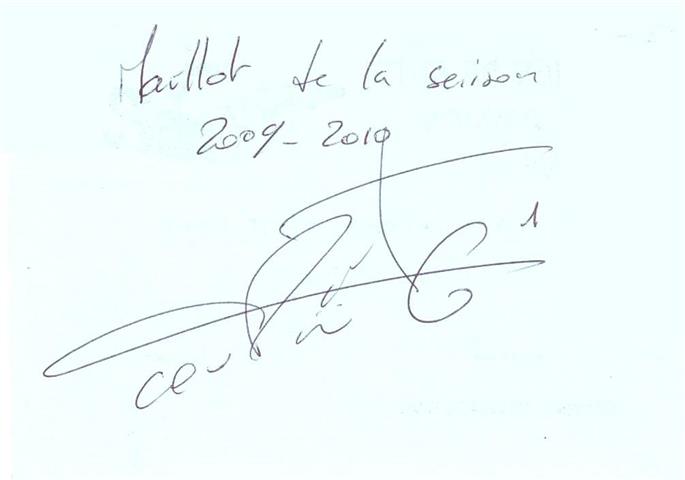 Maillot de la saison
2009-2010
1